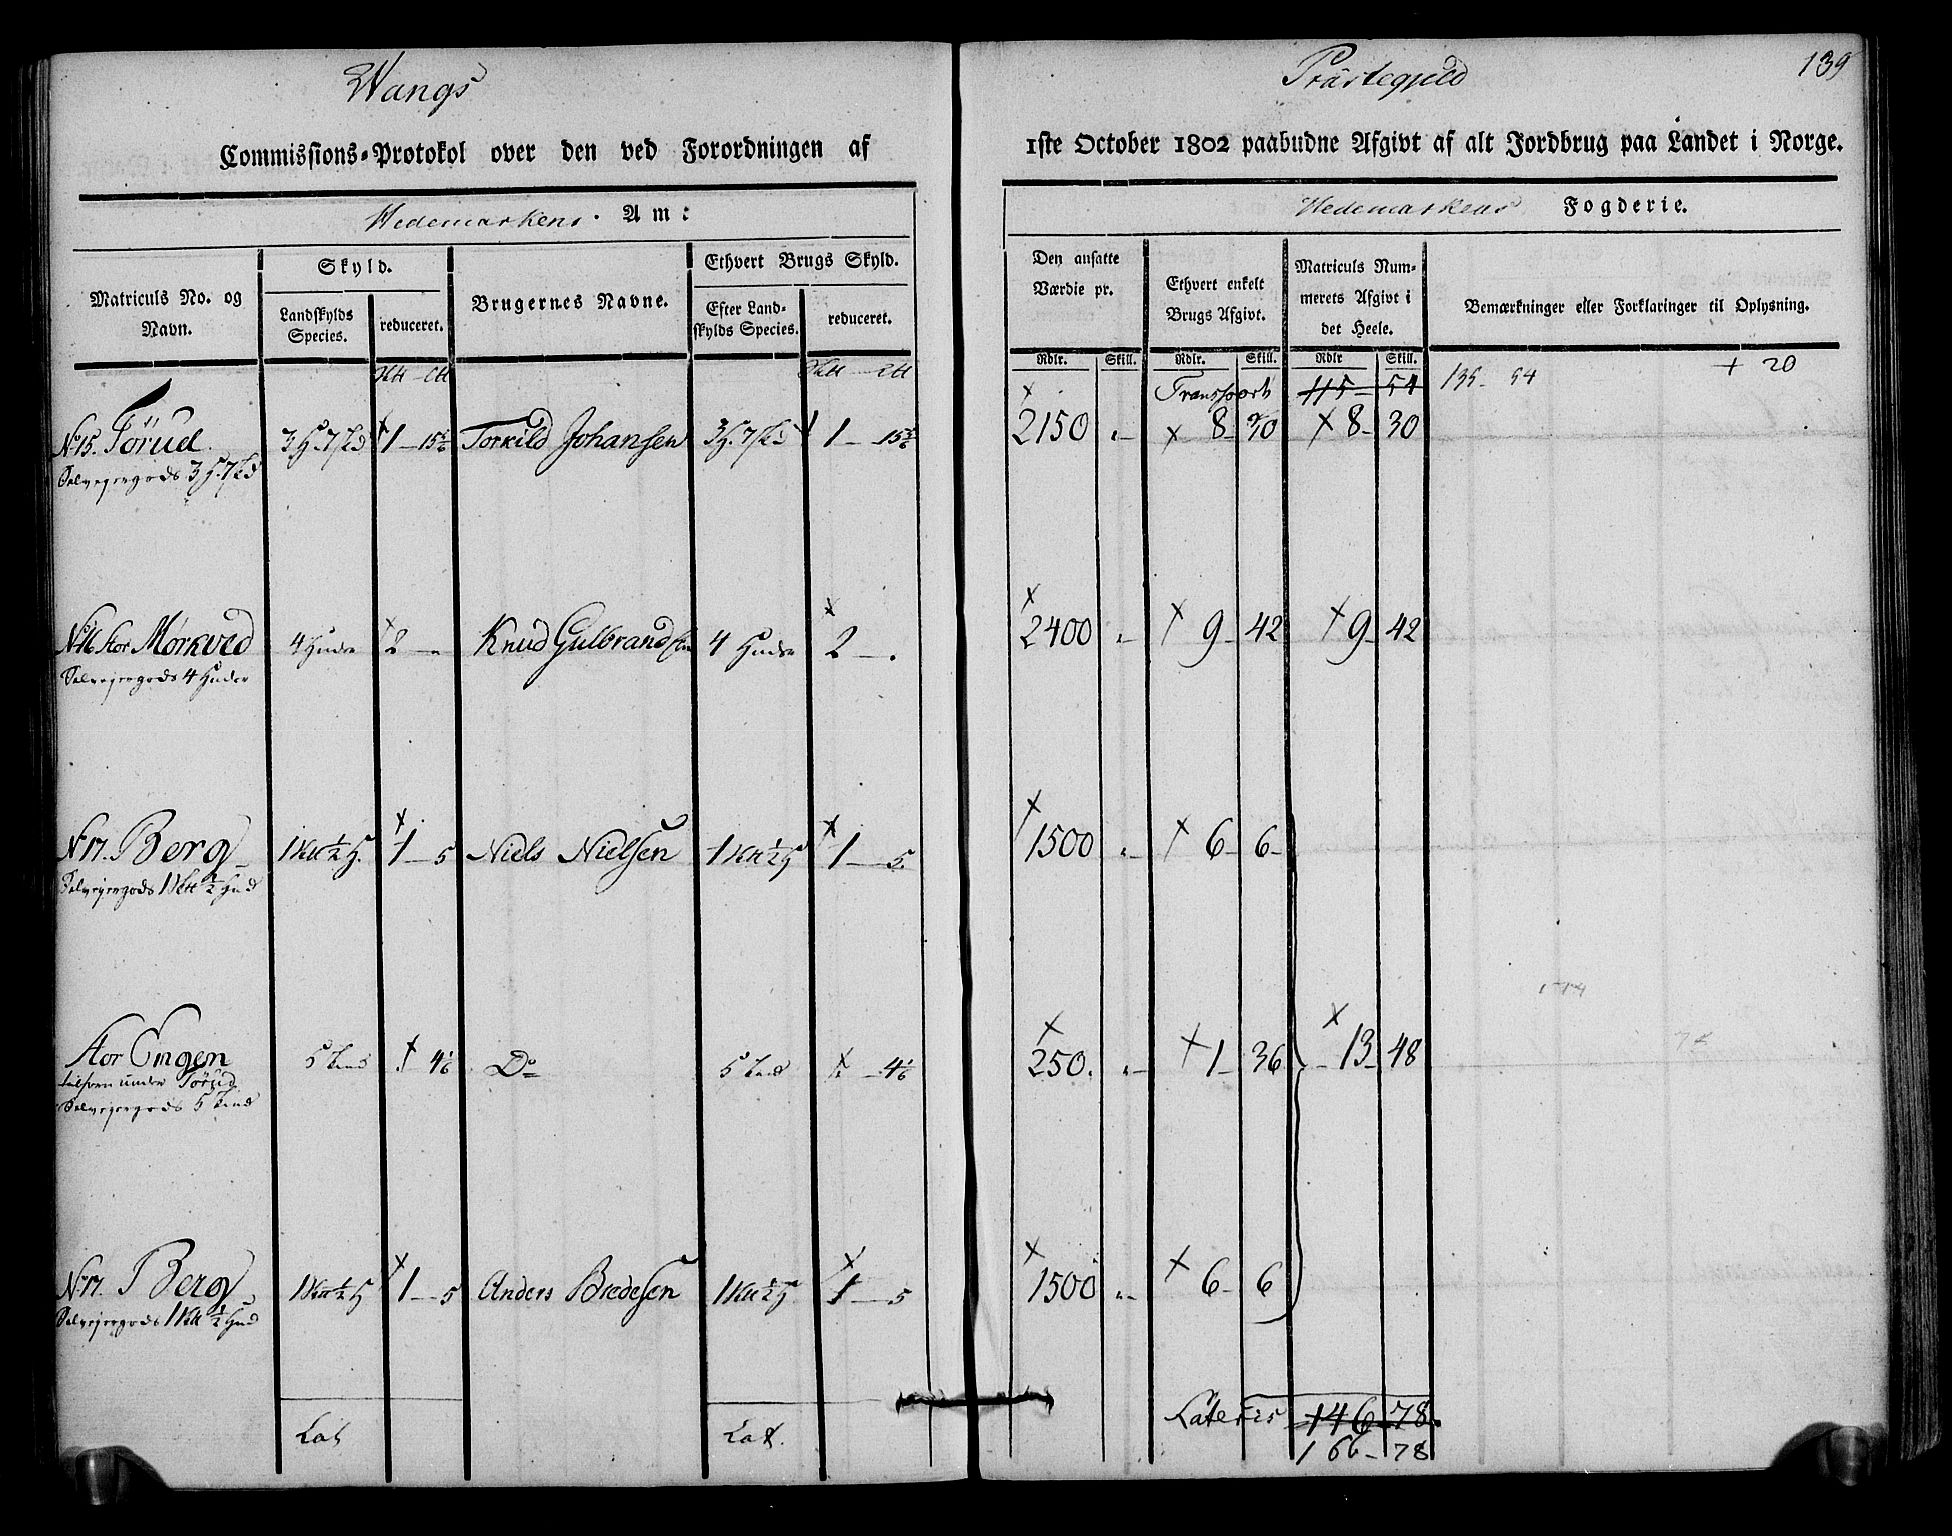 Wangs Præstegjeld 139
Commissions-Protokol over den ved Forordningen af 1ste October 1802 paabudne Afgivt af alt Jordbrug paa Landet i Norge.
Hedemarkens Amt Hedemarkens Fogderie.
Matriculs No. og Navn.
Skyld.
Landskylds Species.
reduceret.
Brugernes Navne.
Ethvert Brugs Skyld.
Efter Landskylds Species.
reduceret.
Den ansatte Værdie pr.
Ethvert enkelt Brugs Afgivt.
Matriculs Nummerets Afgivt i det Heele.
Bemærkninger eller Forklaringer til Oplysning.
Rdlr. Skill. Rdlr. Skill. Rdlr Skill.
Transport 115 54 135 - 54 + 20
No 15. Tørud 3 H 7 1 - 15 5/6 Torkild Johansen 3 H. 7 1 - 15 5/6 2150 „ 8 - 30 8 - 30
Selveiergods 3 H. 7
No 16 Stor Mørkved 4 Huder 2 - „ Knud Gulbrandsen 4 Huder 2 - „ 2400 „ 9 - 42 9 - 42
Selveiergods 4 Huder
No 17. Berg 1 1/2 H. 1 - 5 Niels Nielsen 1 1/2 H 1 - 5 1500 „ 6 - 6
Selveiergods 1 1/2 Hud
Stor Engen 5 4 1/6 Do 5 4 1/6 250 „ 1 - 36 13 - 48
under Tørud
Selveiergods 5
No 17. Berg 1 1/2 H 1 - 5 Anders Bredesen 1 1/2 H 1 - 5 1500 „ 6 - 6
Selveiergods 1 1/2 Hud
Lat Lat. Lateris 146 78
166 - 78